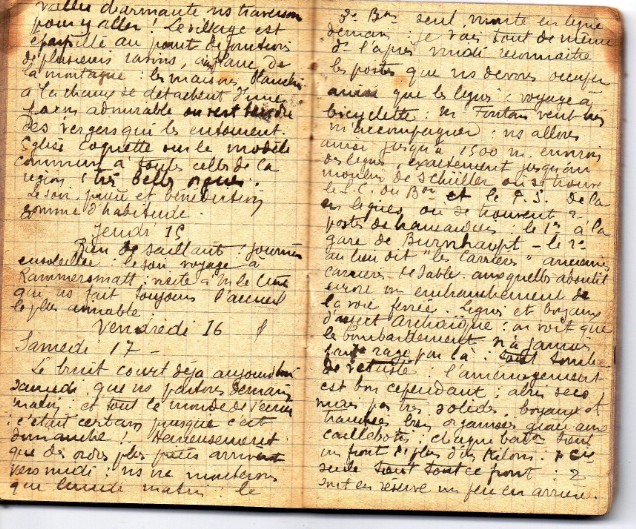 vallée charmante ns traversons
pour y aller. Le village est
éparpillé au point de jonction
de plusieurs ravins, au flanc de
la montagne : les maisons blanchies
à la chaux se détachent d'une
façon admirable au vert sombre
des vergers qui les entourent.
Eglise coquette sur le modèle
commun à toutes celles de la
région : très belles orgues.
Le soir, prière et bénédiction
comme d'habitude.
Jeudi 15
Rien de saillant : journée
ensoleillée : le soir voyage à
Rammersmatt : visite à M. le Curé
qui ns fait toujours l'accueil
le plus aimable
Vendredi 16
Samedi 17 -
Le bruit court déjà aujourd'hui
Samedi que ns partons demain
matin, et tout le monde de
c'était certain presque c'est
dimanche ! Heureusement
que des ordres plus précis arrivent
vers midi : ns ne monterons
que lundi matin le
3e Bon seul monte en ligne
demain : je vais tout de même
l'après midi reconnaître
les postes que ns devons occuper
ainsi que les lignes : voyage à
bicyclette : M. Fontan veut bien
m'accompagner : ns allons
ainsi jusqu'à 1500 m. environ
des lignes, exactement jusqu'au
moulin de Schüller où se trouve
le P.C. du Bon et le P.S. de la
en lignes où se trouvent 2
postes de brancardiers : le 1er à la
gare de Burnhaupt - le 2e
au lieu dit "les carrières" anciennes
carrières de sable auxquelles aboutit
encore un embranchement de
la voie ferrée. Lignes et boyaux
d'aspect archaïque : on voit que
le bombardement n'a jamais
fait rage par là : tout tombe
de vétusté : l'aménagement
est bon cependant : abris secs
mais pas très solides, boyaux et
tranchées bien organisés grâce aux
caillebotis : chaque bat. tient
un front de plus d'un kilom. : 1 Cie
seule tient tout ce front : 2
sont en réserve un peu en arrière.